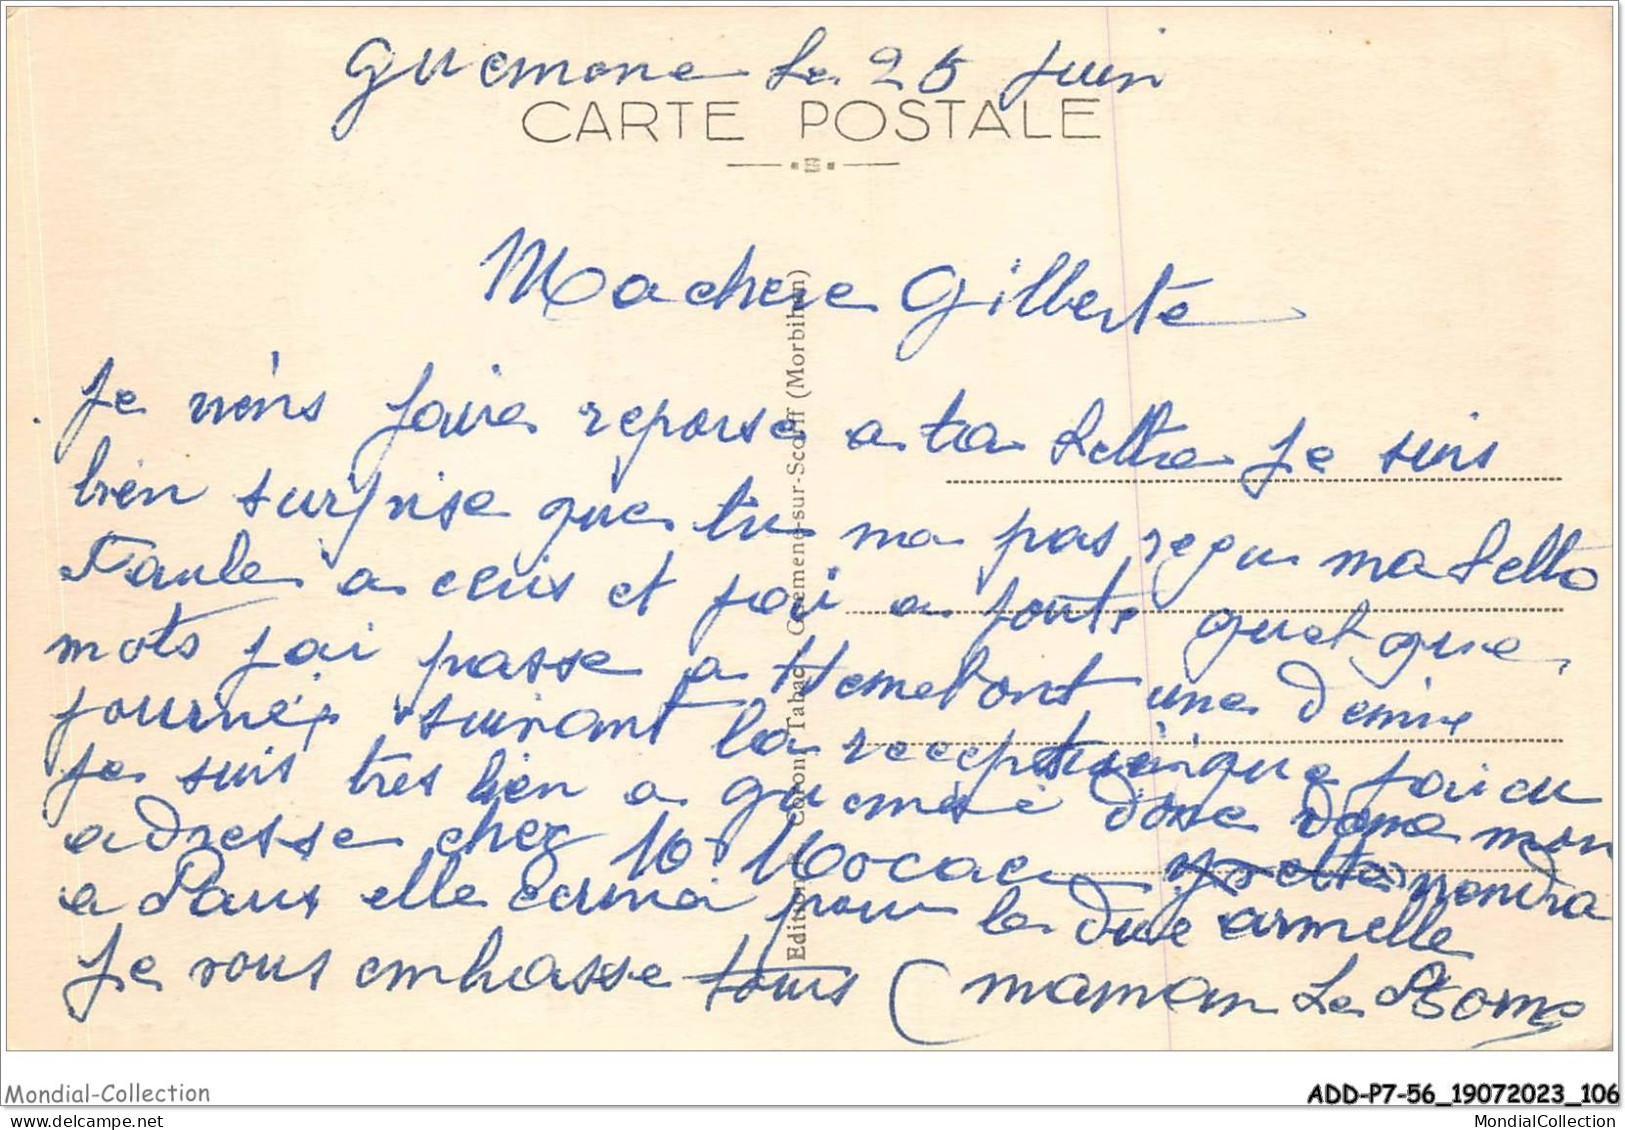 guemene Le 25 juin
CARTE POSTALE
Machere Gilberte
Je viens faire reponse a ta Lettre Je suis
bien surprise que tu ma pas reçu ma Lettre
Paule a ecris et jai a joute quelque
mots jai passe a Hennebont une demie
journé suivant la reception que jai eu
Je suis tres bien a guemené donc mon
adresse chez vendra
a Paris elle pour la armelle
Je vous embrasse tous maman Le
Edition Tabac Guemene-sur-Scorff (Morbihan)
Mondial-Collection
ADD-P7-56_19072023_106
MondialCollection